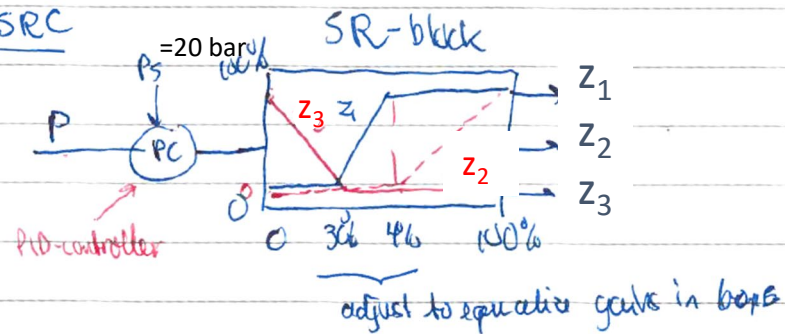 SRC
SR-block
=20 bar
Ps
100%
P
PC
Z3
Z1
Z1
Z2
Z2
Z3
0
PID-controller
0 30% 4% 100%
adjust to equalize gains in